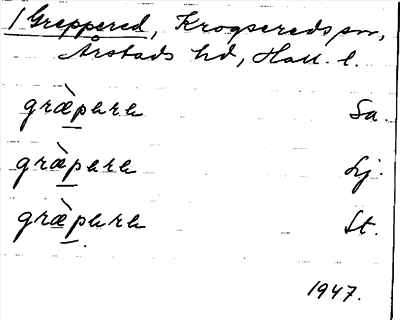 / Greppered, Krogsereds sn,
Årstads hd, Hall. l.
græ̀pərə Sa.
græ̀pərə Lj.
græ̀pərə St.
1947.